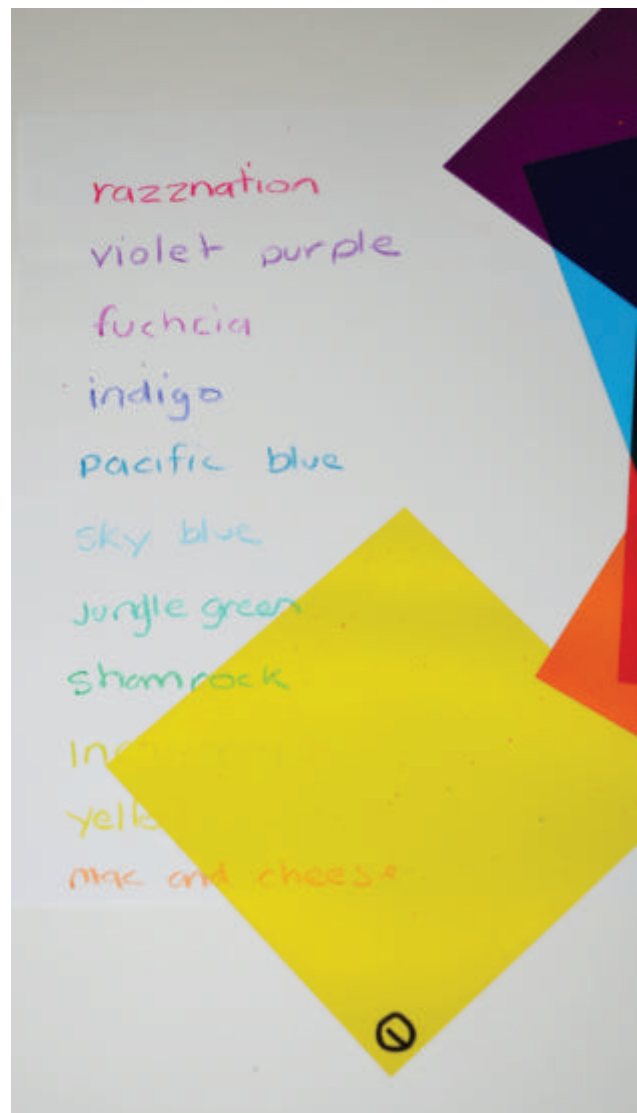 razznation
violet purple
fuchcia
indigo
pacific blue
sky blue
jungle green
shamrock
mac and cheese